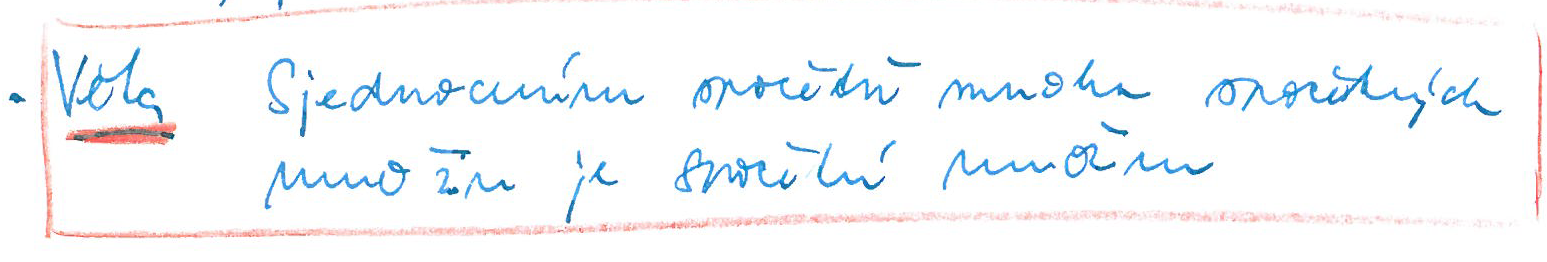 Věta Sjednocením spočetně mnoha spočetných
množin je spočetná množina